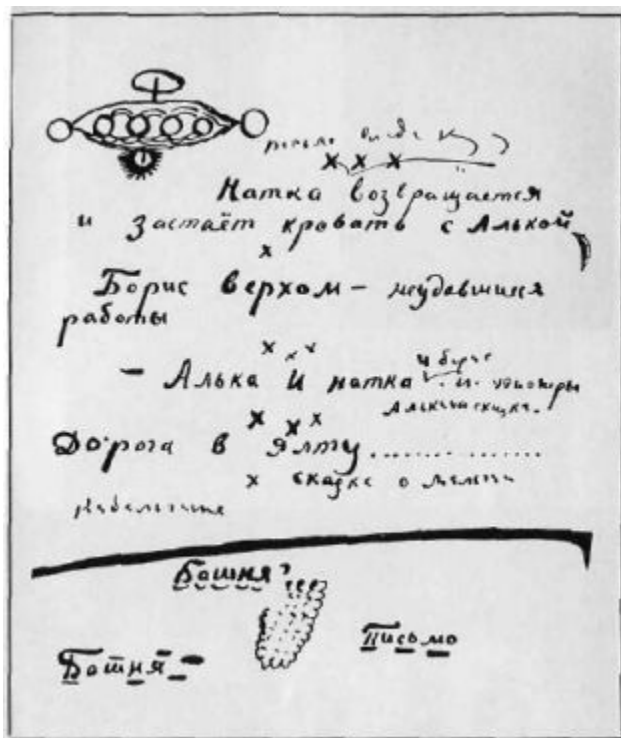 Натка возвращается
и застаёт кровать с Алькой
Борис верхом – неудавшиеся
работы
– Алька и натка и пионеры
Дорога в Ялту..............
сказка о
Башня?
Письмо
Башня –